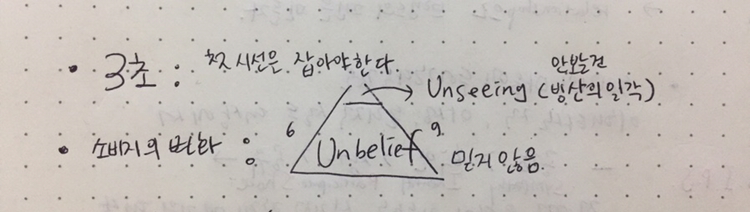 • 3초 : 첫 시선은 잡아야한다.
안보는건
→ Unseeing (빙산의 일각)
• 소비자의 변화 :
6 9
Unbelief 믿지 않음.